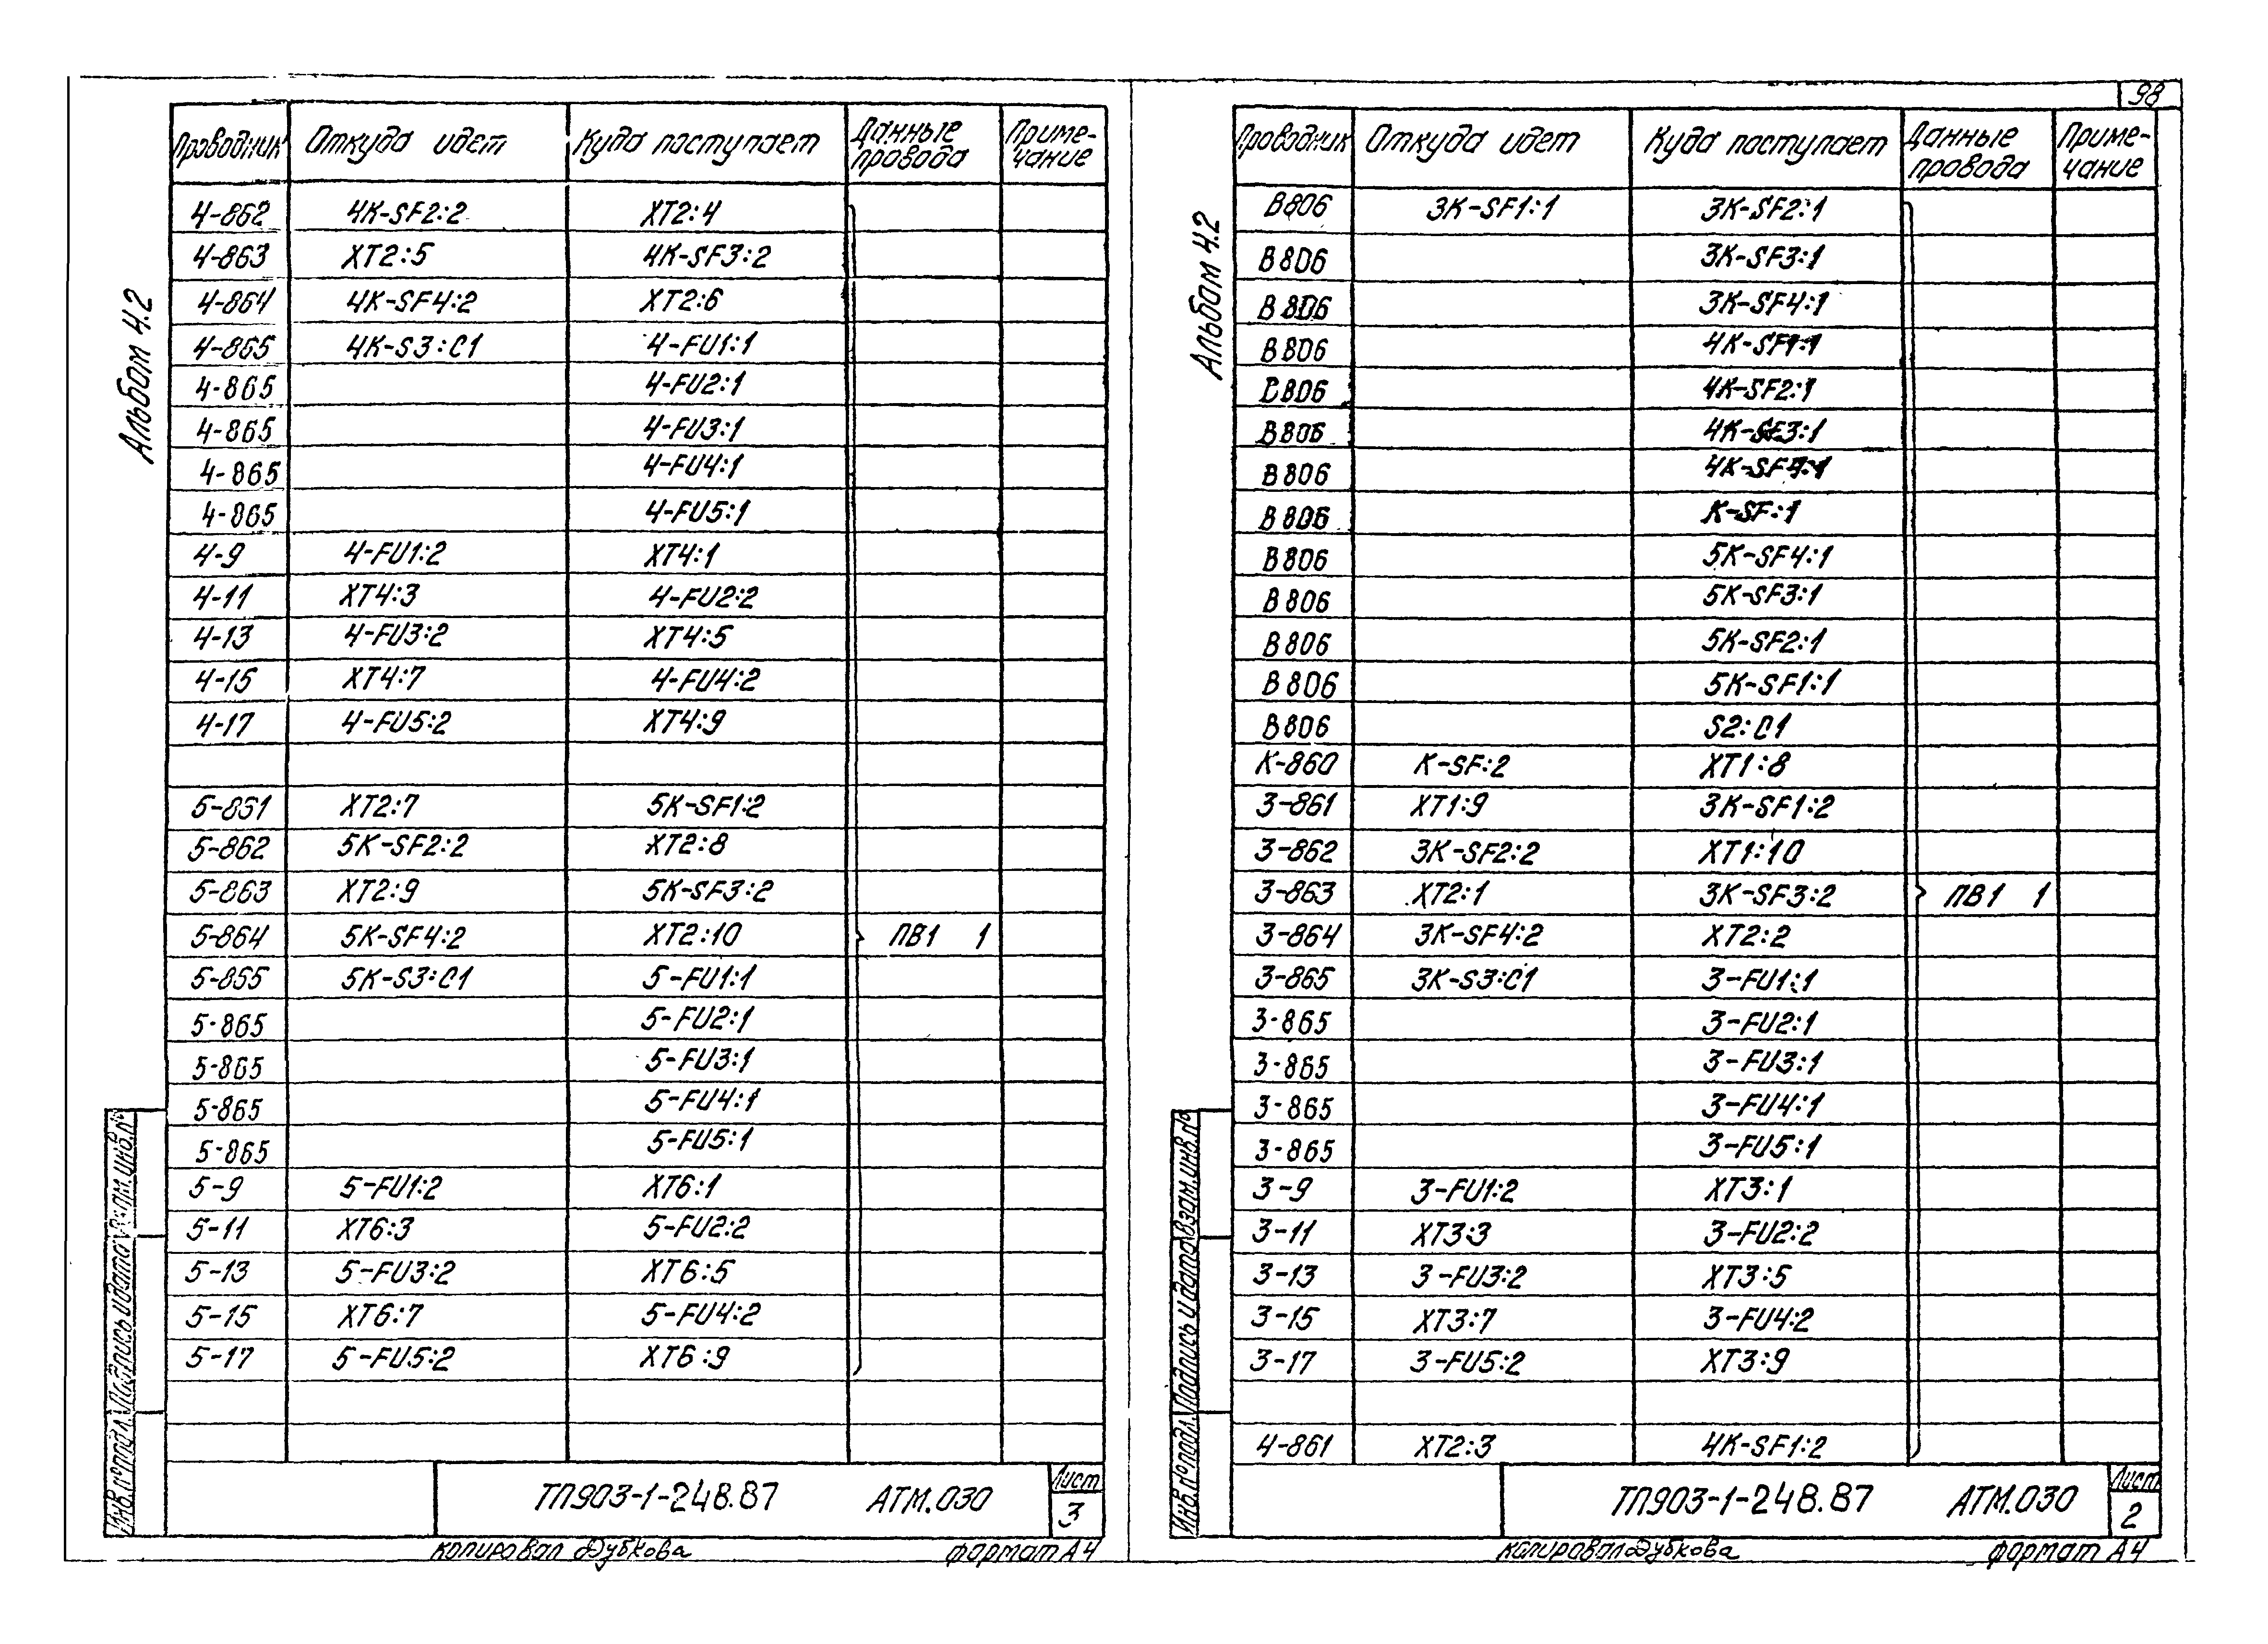 98
Альбом 4.2
Проводник Откуда идет Куда поступает Данные провода Приме-чание
4-862 4К-SF2:2 ХТ2:4
4-863 ХТ2:5 4К-SF3:2
4-864 4К-SF4:2 ХТ2:6
4-865 4К-S3:С1 4-FU1:1
4-865 4-FU2:1
4-865 4-FU3:1
4-865 4-FU4:1
4-865 4-FU5:1
4-9 4-FU1:2 ХТ4:1
4-11 ХТ4:3 4-FU2:2
4-13 4-FU3:2 ХТ4:5
4-15 ХТ4:7 4-FU4:2
4-17 4-FU5:2 ХТ4:9
5-861 ХТ2:7 5К-SF1:2
5-862 5К-SF2:2 ХТ2:8
5-863 ХТ2:9 5К-SF3:2
5-864 5К-SF4:2 ХТ2:10 ПВ1 1
5-865 5К-S3:С1 5-FU1:1
5-865 5-FU2:1
5-865 5-FU3:1
5-865 5-FU4:1
5-865 5-FU5:1
5-9 5-FU1:2 ХТ6:1
5-11 ХТ6:3 5-FU2:2
5-13 5-FU3:2 ХТ6:5
5-15 ХТ6:7 5-FU4:2
5-17 5-FU5:2 ХТ6:9
Взам.инв.№
Подпись и дата
Инв.№подл.
ТП903-1-248.87 АТМ.030 Лист 3
копировал Дубкова формат А4
Альбом 4.2
Проводник Откуда идет Куда поступает Данные провода Приме-чание
В806 3К-SF1:1 3К-SF2:1
В806 3К-SF3:1
В806 3К-SF4:1
В806 4К-SF1:1
В806 4К-SF2:1
В806 4К-SF3:1
В806 4К-SF4:1
В806 К-SF:1
В806 5К-SF4:1
В806 5К-SF3:1
В806 5К-SF2:1
В806 5К-SF1:1
В806 S2:С1
К-860 К-SF:2 ХТ1:8
3-861 ХТ1:9 3К-SF1:2
3-862 3К-SF2:2 ХТ1:10
3-863 ХТ2:1 3К-SF3:2 ПВ1 1
3-864 3К-SF4:2 ХТ2:2
3-865 3К-S3:С1 3-FU1:1
3-865 3-FU2:1
3-865 3-FU3:1
3-865 3-FU4:1
3-865 3-FU5:1
3-9 3-FU1:2 ХТ3:1
3-11 ХТ3:3 3-FU2:2
3-13 3-FU3:2 ХТ3:5
3-15 ХТ3:7 3-FU4:2
3-17 3-FU5:2 ХТ3:9
4-861 ХТ2:3 4К-SF1:2
Взам.инв.№
Подпись и дата
Инв.№подл.
ТП903-1-248.87 АТМ.030 Лист 2
копировал Дубкова формат А4